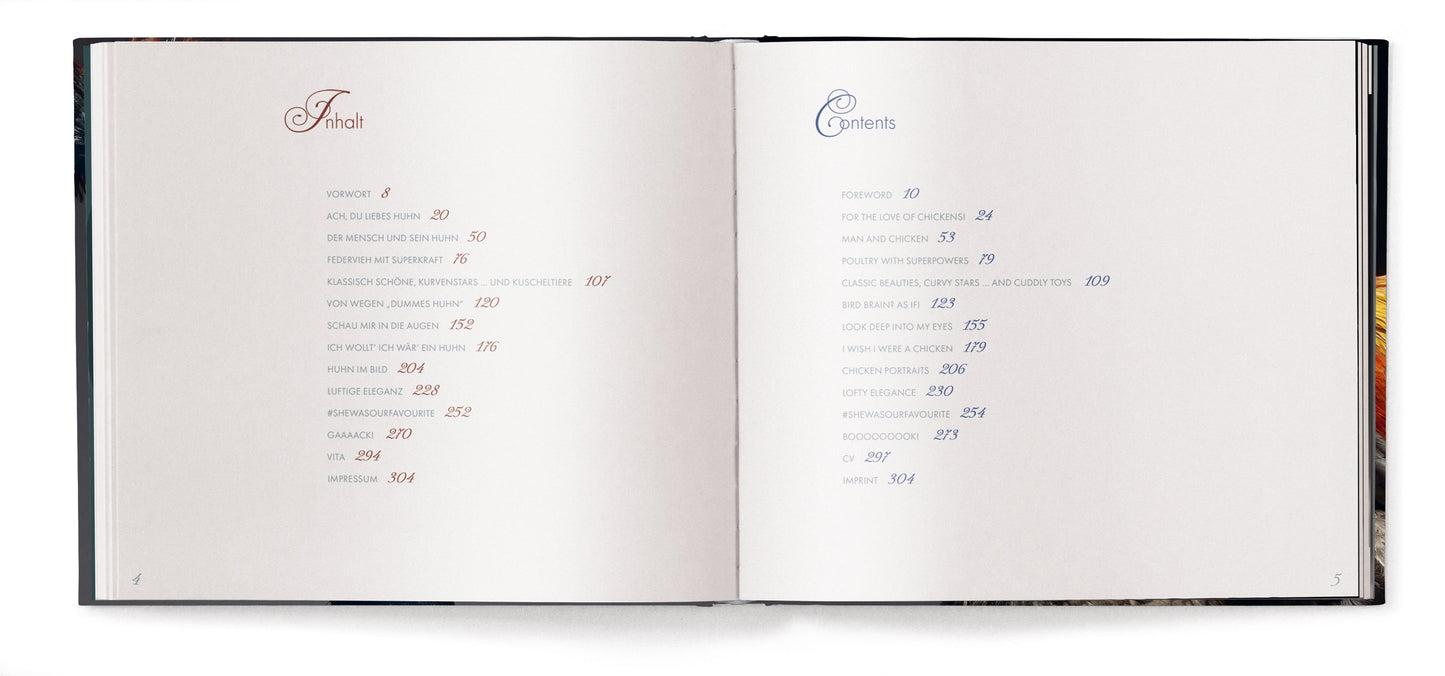 Inhalt
VORWORT 8
ACH, DU LIEBES HUHN 20
DER MENSCH UND SEIN HUHN 50
FEDERVIEH MIT SUPERKRAFT 76
KLASSISCH SCHÖNE, KURVENSTARS ... UND KUSCHELTIERE 107
VON WEGEN „DUMMES HUHN“ 120
SCHAU MIR IN DIE AUGEN 152
ICH WOLLT’ ICH WÄR’ EIN HUHN 176
HUHN IM BILD 204
LUFTIGE ELEGANZ 228
#SHEWASOURFAVOURITE 252
GAAAACK! 270
VITA 294
IMPRESSUM 304
4
Contents
FOREWORD 10
FOR THE LOVE OF CHICKENS! 24
MAN AND CHICKEN 53
POULTRY WITH SUPERPOWERS 79
CLASSIC BEAUTIES, CURVY STARS ... AND CUDDLY TOYS 109
BIRD BRAIN? AS IF! 123
LOOK DEEP INTO MY EYES 155
I WISH I WERE A CHICKEN 179
CHICKEN PORTRAITS 206
LOFTY ELEGANCE 230
#SHEWASOURFAVOURITE 254
BOOOOOOOOK! 273
CV 297
IMPRINT 304
5